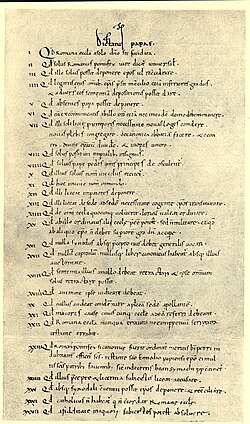 Dictatus papae.
I Qd Romana eccla a solo dno sit fundata.
II Qd solus Romanus pontifex iure dicat universal.
III Qd ille solus possit deponere epos vel reconciliare.
IIII Qd legatus eius omnib; epis presit in concilio etiam inferioris gradus
et adversus eos sententiam depositionis possit dare.
V Qd absentes papa possit deponere.
VI Qd cum excommunicatis ab illo inter cetera nec in eadem domo debemus manere.
VII Qd illi soli licet pro temporis necessitate novas leges condere
novas plebes congregare de canonica abbatiam facere et econ
tra. divitem epatum dividere et inopes unire.
VIII Qd solus possit uti imperialib; insigniis.
VIIII Qd solius papae pedes omnes principes deosculentur.
X Qd illius solius nomen in ecclis recitetur.
XI Qd hoc unicum est nomen in mundo.
XII Qd illi liceat imperatores deponere.
XIII Qd illi liceat de sede ad sedem necessitate cogente epos transmutare.
XIIII Qd de omni eccla quocunq; voluerit clericum valeat ordinare.
XV Qd ab illo ordinatus alii eccle preesse potest sed non militare et qd ab
aliquo epo non debet superiorem gradum accipere.
XVI Qd nulla synodus absq; precepto eius debet generalis vocari.
XVII Qd nullum capitulum nullusq; liber canonicus habeatur absq; illius
auctoritate.
XVIII Qd sententia illius a nullo debeat retractari et ipse omnium
solus retractare possit.
XVIIII Qd a nemine ipse iudicari debeat.
XX Qd nullus audeat condemnare aplicam sedem apellantem.
XXI Qd maiores cause cuiuscunq; eccle ad eam referri debeant.
XXII Qd Romana eccla nunquam erravit nec imperpetuum scriptura
testante errabit.
XXIII Qd Romanus pontifex si canonice fuerit ordinatus meritis beati petri in
dubitanter efficitur scs testante sco Ennodio papiensi epo ei mul
tis scis patribus faventib; sicut in decretis beati Symachi pp continetur.
XXIIII Qd illius precepto et licentia subiectis liceat accusare.
XXV Qd absq; synodali conventu possit epos deponere et reconciliare.
XXVI Qd catholicus non habeatur qui non concordat Romane eccle.
XXVII Qd a fidelitate iniquorum subiectos potest absolvere.